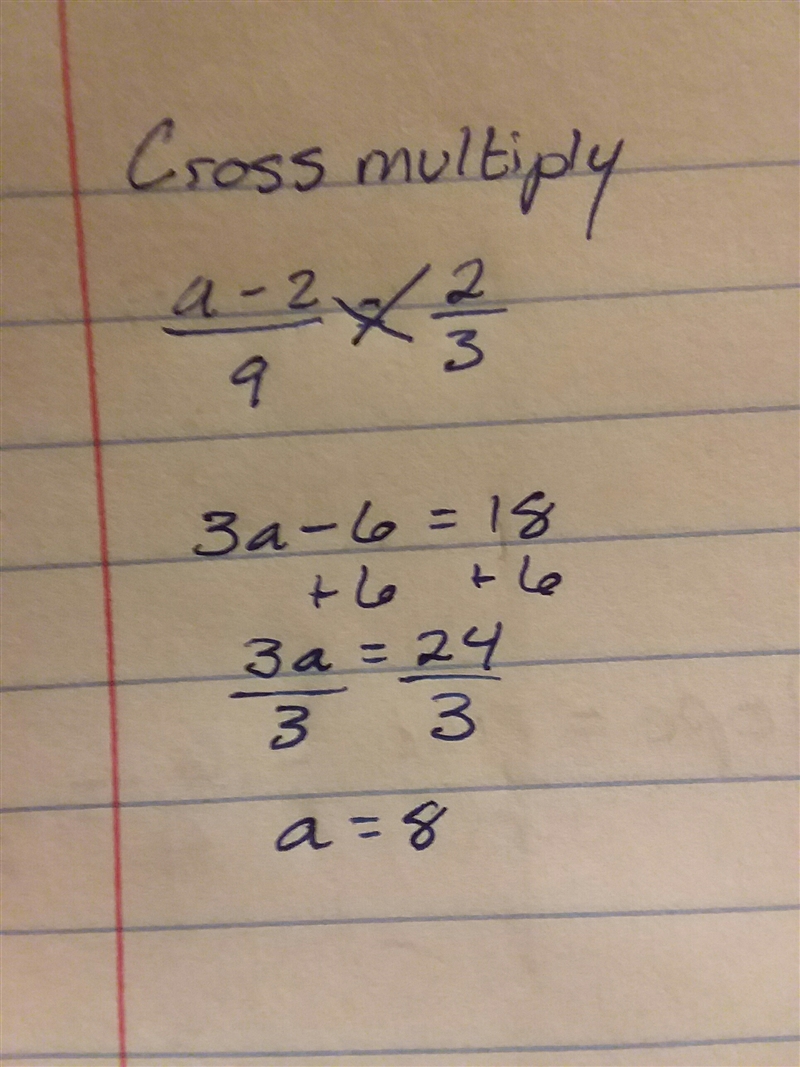 Cross multiply
a - 2 = 2
9 3
3a - 6 = 18
+6 +6
3a = 24
3 3
a = 8